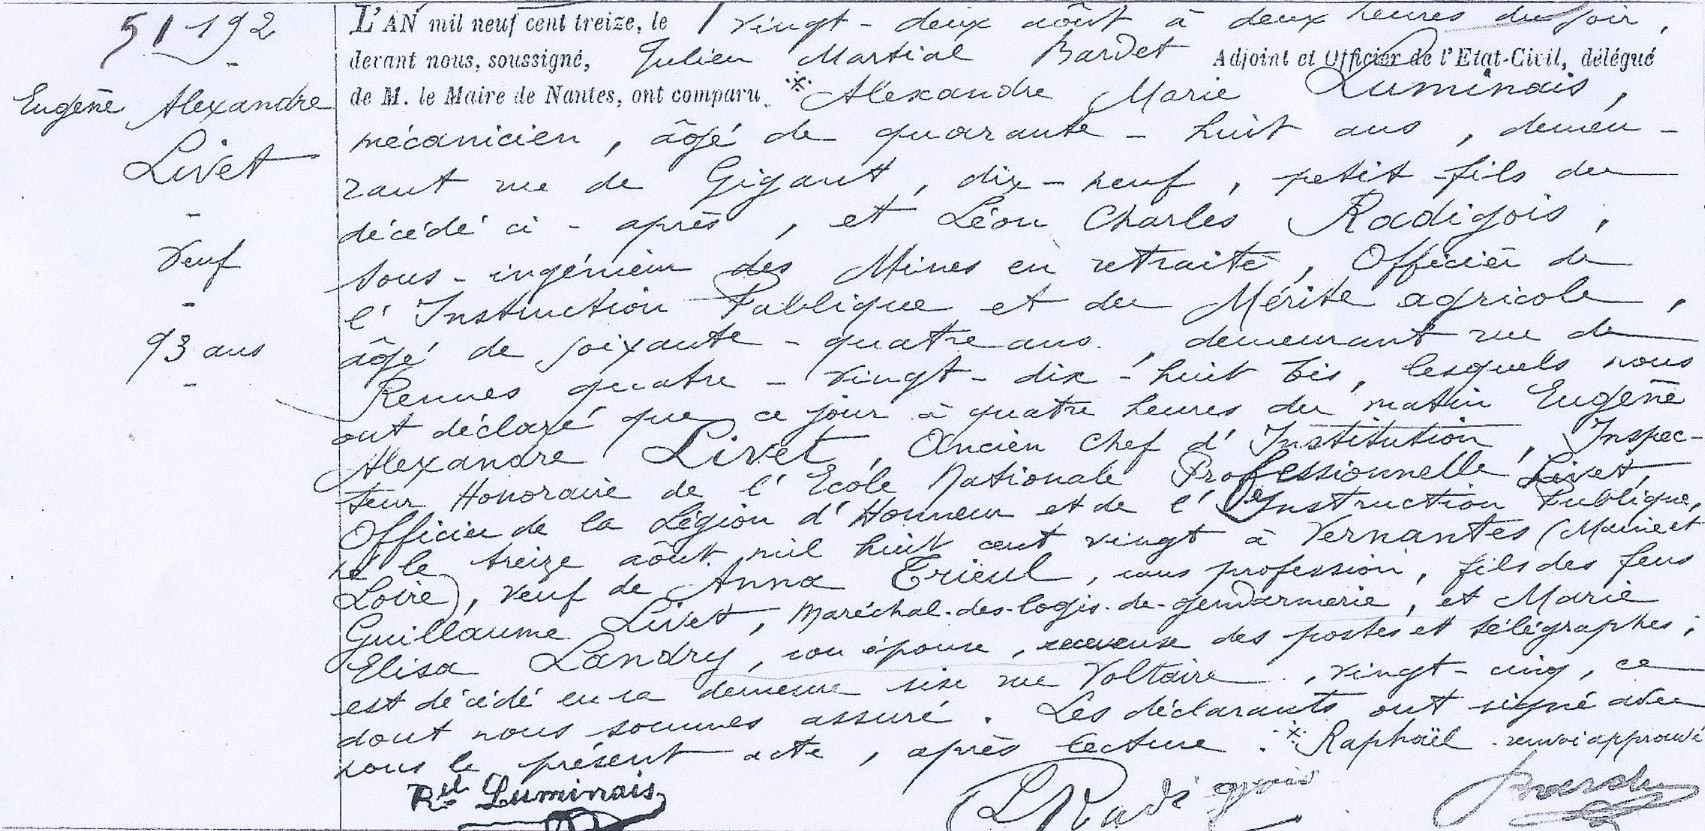 51 192
Eugène Alexandre
Livet
-
Veuf
-
93 ans
-
L'AN mil neuf cent treize, le vingt-deux août à deux heures du soir,
devant nous, soussigné, Julien Martial Bardet Adjoint et Officier de l'Etat-Civil, délégué
de M. le Maire de Nantes, ont comparu ※ Alexandre Marie Luminais,
mécanicien, âgé de quarante-huit ans, demeu-
rant rue de Gigant, dix-neuf, petit-fils du
décédé ci-après, et Léon Charles Radigois,
sous-ingénieur des Mines en retraite, Officier de
l'Instruction Publique et du Mérite agricole,
âgé de soixante-quatre ans, demeurant rue de
Rennes quatre-vingt-dix-huit bis, lesquels nous
ont déclaré que ce jour à quatre heures du matin Eugène
Alexandre Livet, Ancien Chef d'Institution, Inspec-
teur Honoraire de l'Ecole Nationale Professionnelle Livet,
Officier de la Légion d'Honneur et de l'Instruction Publique,
né le treize août mil huit cent vingt à Vernantes (Maine et
Loire), veuf de Anna Trieul, sans profession, fils des feus
Guillaume Livet, Maréchal-des-logis-de-gendarmerie, et Marie
Elisa Landry, son épouse, receveuse des postes et télégraphes;
est décédé en sa demeure sise rue Voltaire, vingt-cinq, ce
dont nous sommes assuré. Les déclarants ont signé avec
nous le présent acte, après lecture. ※ Raphaël renvoi approuvé
Rel Luminais
L Radigois
Bardet